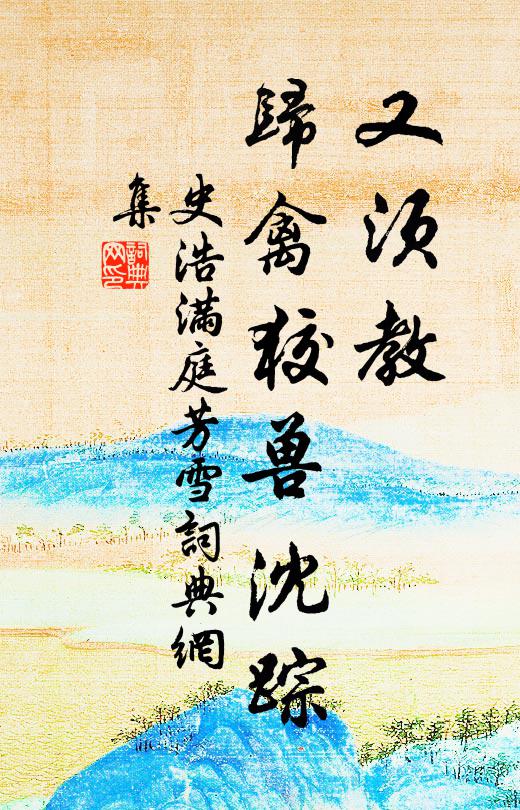 又须教
歸禽狡兽沈踪
史浩满庭芳雪詞典網
集
詞典网印